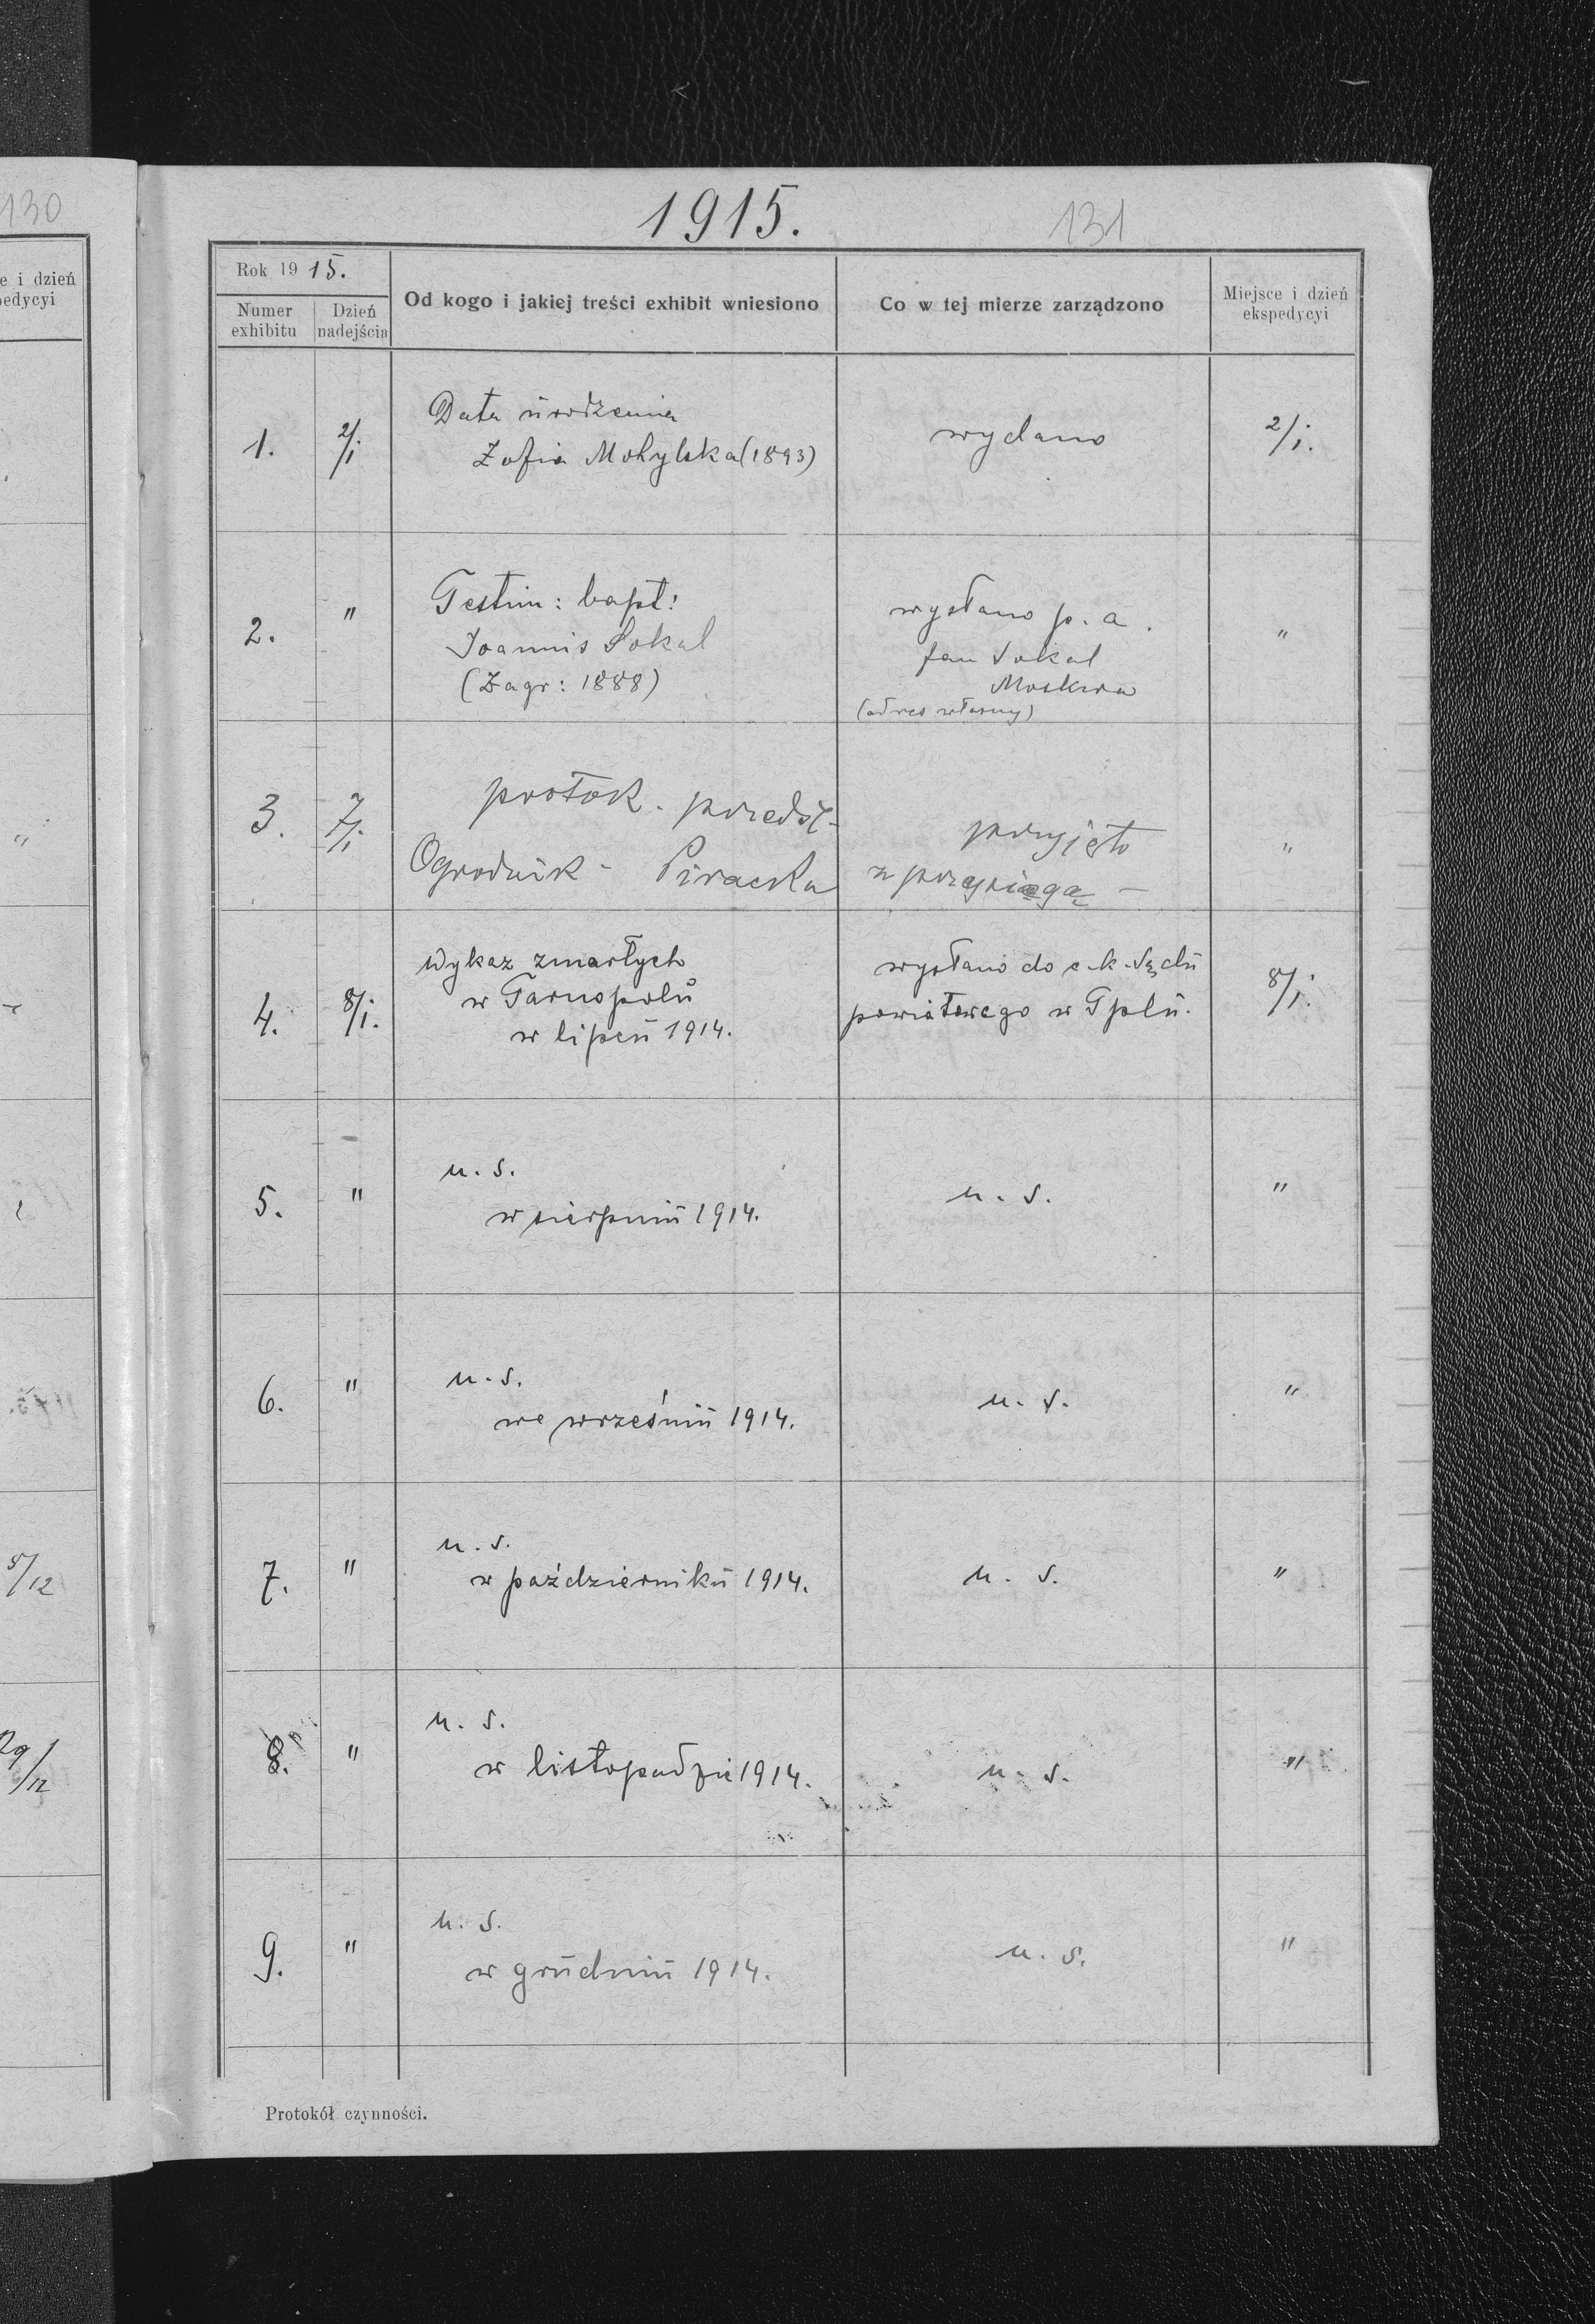 130
e i dzień
pedycyi
5/12
29/12
1915.
131
Rok 1915.
Numer exhibitu
Dzień nadejścia
Od kogo i jakiej treści exhibit wniesiono
Co w tej mierze zarządzono
Miejsce i dzień ekspedycyi
1. 2/I Data urodzenia
Zofia Mohylska (1893)
wydano
2/I.
2. "
Testim: bapt:
Joannis Sokal
(Zagr: 1888)
wysłano p. a.
Jan Sokal
Moskwa
(adres własny)
"
3. 7/I.
protok. przedśl-
Ogrodnik - Piracka
przyjęto
z przysięgą -
"
4. 8/I.
Wykaz zmarłych
w Tarnopolu
w lipcu 1914.
wysłano do c. k. Sądu
powiatowego w Tplu.
8/I.
5. "
u. s.
w sierpniu 1914.
u. s.
"
6. "
u. s.
we wrześniu 1914.
u. s.
"
7. "
u. s.
w październiku 1914.
u. s.
"
8. "
u. s.
w listopadzie 1914.
u. s.
"
9. "
u. s.
w grudniu 1914.
u. s.
"
Protokół czynności.